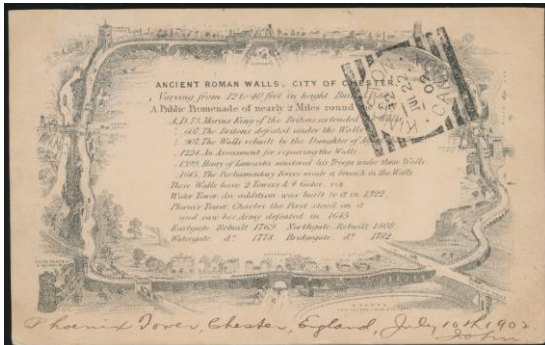 ANCIENT ROMAN WALLS, CITY OF CHESTER,
Varying from 12 to 40 feet in height
A Public Promenade of nearly 2 Miles round the City
A.D. 73. Marius King of the Britons extended Walls
607. The Britons defeated under the Walls
907. The Walls rebuilt by the Daughter of
1224. An Assessment for repairing the Walls.
1399. Henry of Lancaster mustered his Troops under these Walls.
1645. The Parliamentary Forces made a breach in the Walls
These Walls have 2 Towers & 4 Gates, viz
Water Tower An addition was built to it in 1322
Phœnix Tower. Charles the First stood on it
and saw his Army defeated in 1645
Eastgate Rebuilt 1769. Northgate Rebuilt 1808.
Watergate. do. 1778 Bridgegate. do. 1782
Phoenix Tower, Chester, England, July 10th 1902.
John.